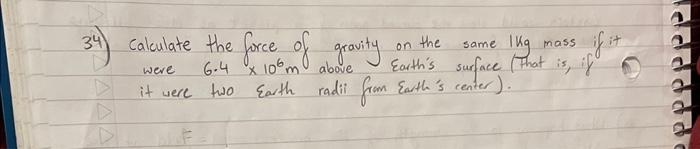 34) Calculate the force of gravity on the same 1Kg mass if it
were 6.4 x 10⁶m above Earth's surface (That is, if
it were two Earth radii from Earth's center).
F =